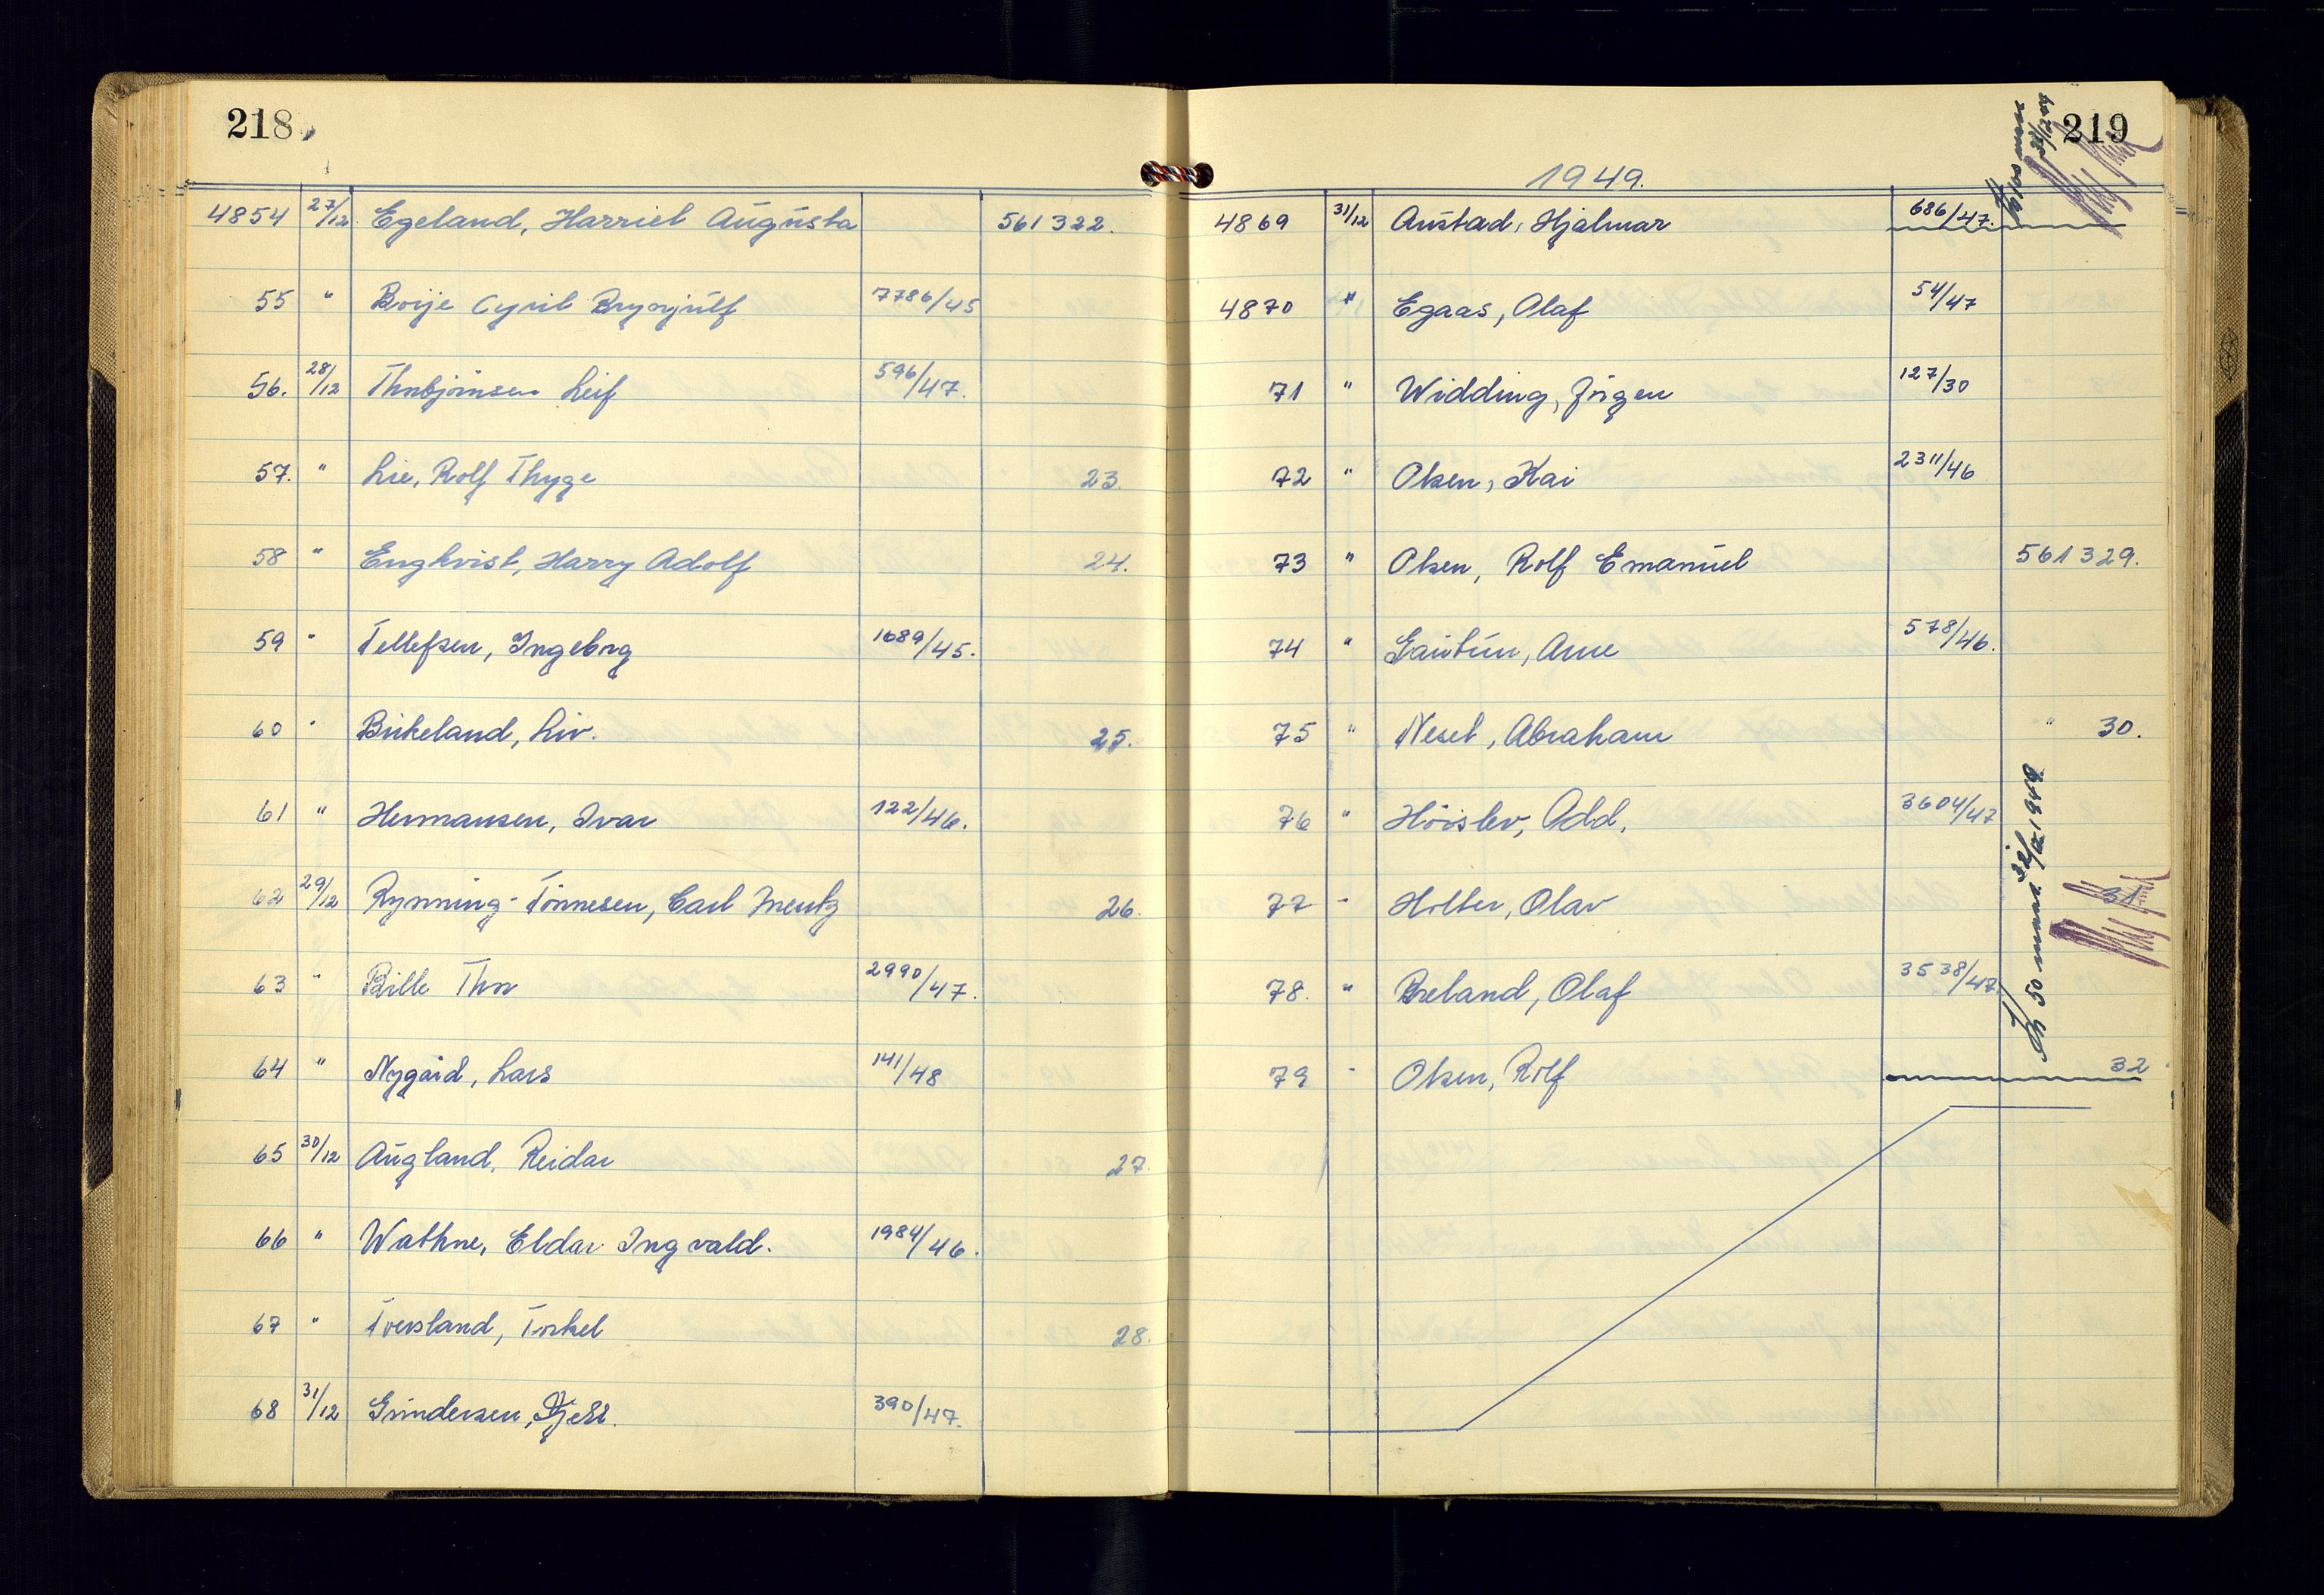 218
4854 27/12 Egeland, Harriet Augusta 561322.
55 " Boije Cyril Brynjulf 7786/45
56. 28/12 Thorbjörnsen Leif 596/47.
57. " Lie, Rolf Thyge 23.
58 " Engkvist, Harry Adolf 24.
59 " Tellefsen, Ingeborg 1689/45.
60 " Birkeland, Liv. 25.
61 " Hermansen, Ivar 122/46.
62 29/12 Rynning-Tönnesen, Carl Mentz 26.
63 " Bille Thor 2990/47.
64 " Nygård, Lars 141/48
65 30/12 Augland, Reidar 27.
66 " Wathne, Eldar Ingvald. 1984/46.
67 " Tversland, Torkel 28.
68 31/12 Gundersen, Kjell. 390/47.
219
1949.
4869 31/12 Austad, Hjalmar 686/47.
4870 " Egaas, Olaf 54/47
71 " Widding, Jörgen 127/30
72 " Olsen, Kai 2311/46
73 " Olsen, Rolf Emanuel 561329.
74 " Gautun, Arne 578/46.
75 " Neset, Abraham " 30.
76 " Höislev, Odd. 3604/47
77 " Holter, Olav 31.
78. " Breland, Olaf 3538/47.
79 " Olsen, Rolf 32